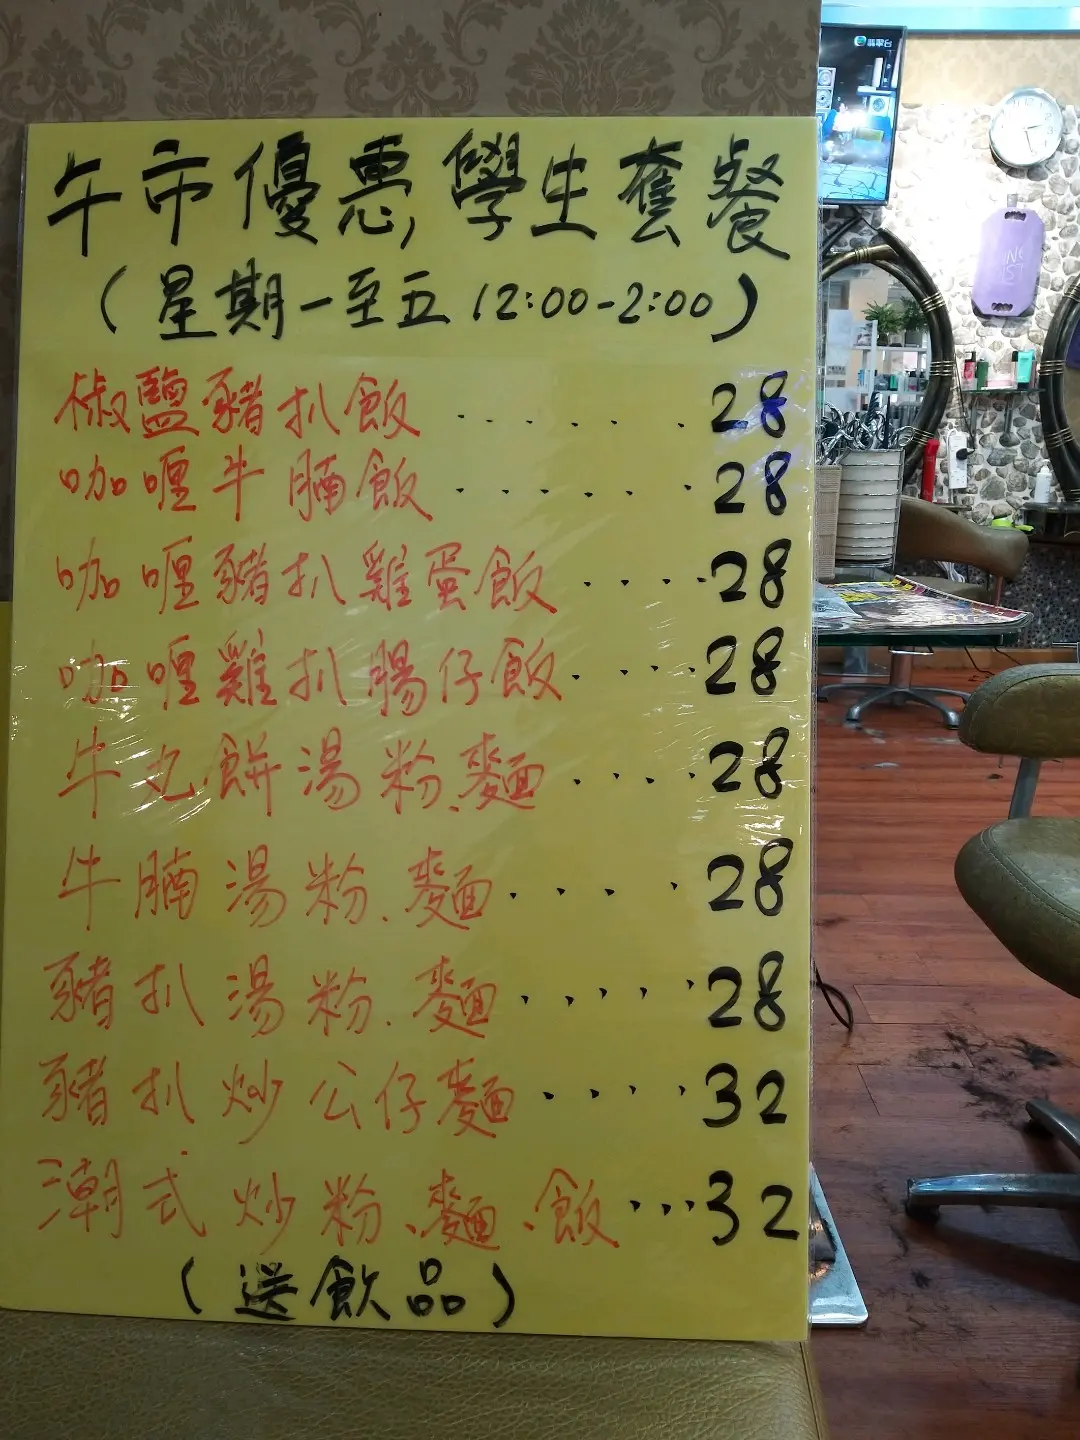 午市優惠,學生套餐
(星期一至五 12:00-2:00)
椒鹽豬扒飯 ..... 28
咖喱牛腩飯 ...... 28
咖喱豬扒雞蛋飯 ..... 28
咖喱雞扒腸仔飯 ..... 28
牛丸.餅湯粉.麵 ..... 28
牛腩湯粉.麵 .... 28
豬扒湯粉.麵 ...... 28
豬扒炒公仔麵 ..... 32
潮式炒粉.麵.飯 ...... 32
(送飲品)
翡翠台